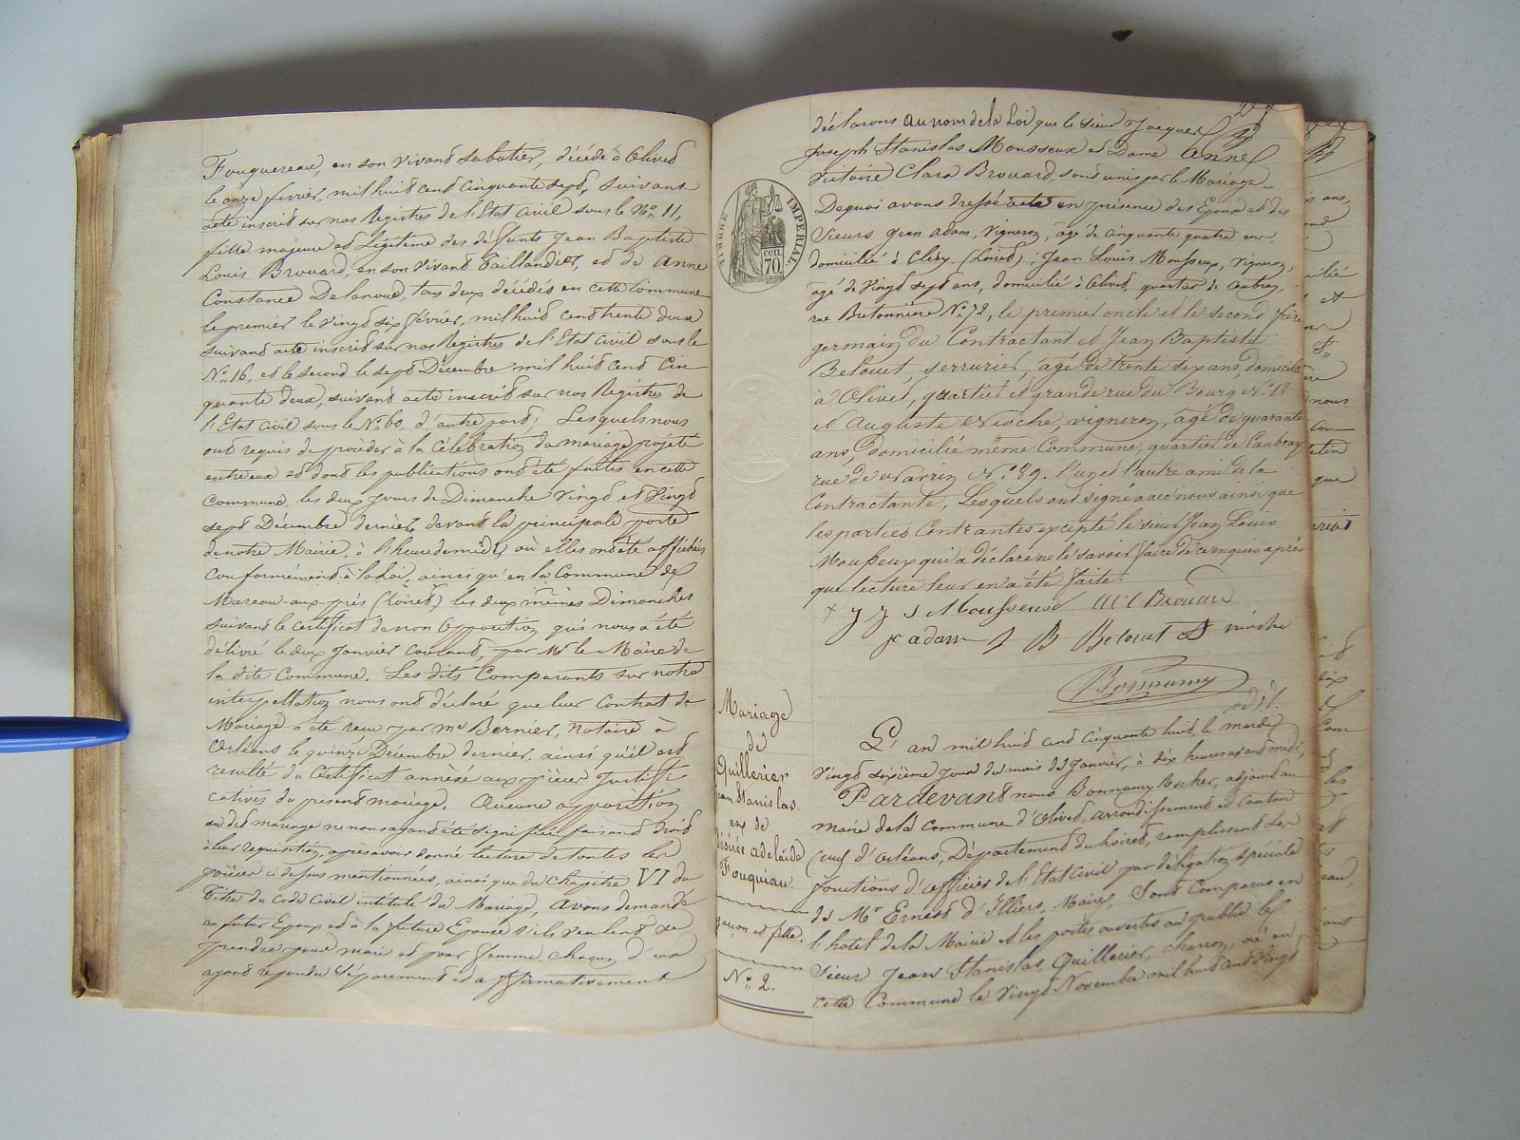 Fouquereau, en son vivant sabotier, décédé à Olivet
le onze février, mil huit cent cinquante sept, suivant
acte inscrit sur nos Registres de l'Etat civil sous le No. 11,
fille majeure et légitime des défunts Jean Baptiste
Louis Brouard, en son vivant Taillandier, et de Anne
Constance Delanoue, tous deux décédés en cette Commune
le premier le vingt six février, mil huit cent trente deux
suivant acte inscrit sur nos Registres de l'Etat civil sous le
No. 16, et le second le sept Décembre mil huit cent Cin
quante deux, suivant acte inscrit sur nos Registres de
l'Etat civil sous le No. 60, d'autre part; Lesquels nous
ont requis de procéder à la célébration du mariage projeté
entre eux et dont les publications ont été faites en cette
Commune, les deux jours de Dimanche vingt et vingt
sept Décembre dernier, devant la principale porte
de notre Mairie, à l'heure de midi, où elles ont été affichées
Conformément à la loi, ainsi qu'en la Commune de
Mareau-aux-prés (Loiret) les deux mêmes Dimanches
suivant le certificat de non opposition qui nous a été
délivré le deux Janvier courant, par Mr le Maire de
la dite Commune. Les dits Comparants sur notre
interpellation nous ont déclaré que leur Contrat de
Mariage a été reçu par me Bernier, notaire à
Orléans le quinze Décembre dernier, ainsi qu'il est
résulté du Certificat annexé aux pièces Justifi
catives du présent mariage. Aucune opposition
au dit mariage ne nous ayant été signifiée faisant droit
à leur requisition, après avoir donné lecture de toutes les
pièces ci dessus mentionnées, ainsi que du chapitre VI du
Titre du Code Civil intitulé du Mariage, Avons demandé
au futur Epoux et à la future Epouse s'ils veulent se
prendre pour mari et pour femme, chacun d'eux
ayant répondu séparément et affirmativement
déclarons au nom de la Loi que le sieur Jacques
Joseph Stanislas Mousseux et Dame Anne
Victoire Clara Brouard, sont unis par le Mariage.
De quoi avons dressé acte en présence des Epoux et des
Sieurs Jean Adam, vigneron, âgé de cinquante quatre ans
domicilié à Cléry (Loiret); Jean Louis Mousseux, vigneron,
âgé de vingt sept ans, domicilié à Olivet, quartier de Caubray,
rue Bretonnière No. 72, le premier oncle et le second frère
germain du Contractant et Jean Baptiste
Belouet, serrurier, âgé de trente six ans, domicilié
à Olivet, quartier et grande rue du Bourg No. 18
et Auguste Nioche, vigneron, âgé de quarante
ans, domicilié même Commune, quartier de Caubray
rue de No. 89. l'un et l'autre amis de la
Contractante, Lesquels ont signé avec nous ainsi que
les parties Contractantes excepté le sieur Jean Louis
Mousseux qui a déclaré ne le savoir faire de ce enquis après
que lecture leur en a été faite.
J J S Mousseux AVC Brouard
J adam J B Belouet nioche
Bonnamy
adjt.
TIMBRE IMPERIAL
70
Mariage
de
Quillerier
Jean Stanislas
avec
Désirée Adélaïde
Fouqueau
garçon et fille.
No. 2.
L'an mil huit cent cinquante huit, le mardi
vingt sixième jour du mois de Janvier, à dix heures avant midi,
Pardevant nous Bonnamy adjoint au
maire de la Commune d'Olivet, arrondissement et Canton
(sud) d'Orléans, Département du Loiret, remplissant les
fonctions d'officier de l'Etat Civil par délégation spéciale
de Mr Ernest d'Illiers, Maire, Sont Comparus en
l'hôtel de la Mairie et les portes ouvertes au public le
Sieur Jean Stanislas Quillerier, charron, né en
cette Commune le vingt Novembre mil huit cent vingt